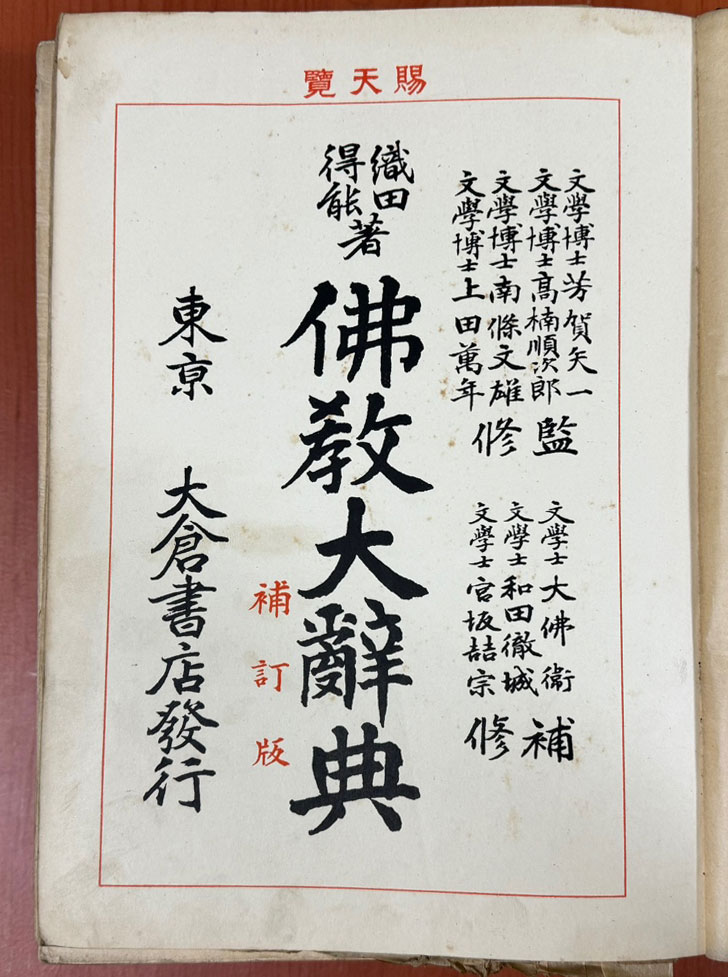 賜天覽
文學博士芳賀矢一
文學博士高楠順次郎
文學博士南條文雄
文學博士上田萬年
監修
文學士大佛衞
文學士和田徹城
文學士宮坂喆宗
補修
織田得能著
佛教大辭典
補訂版
東京 大倉書店發行